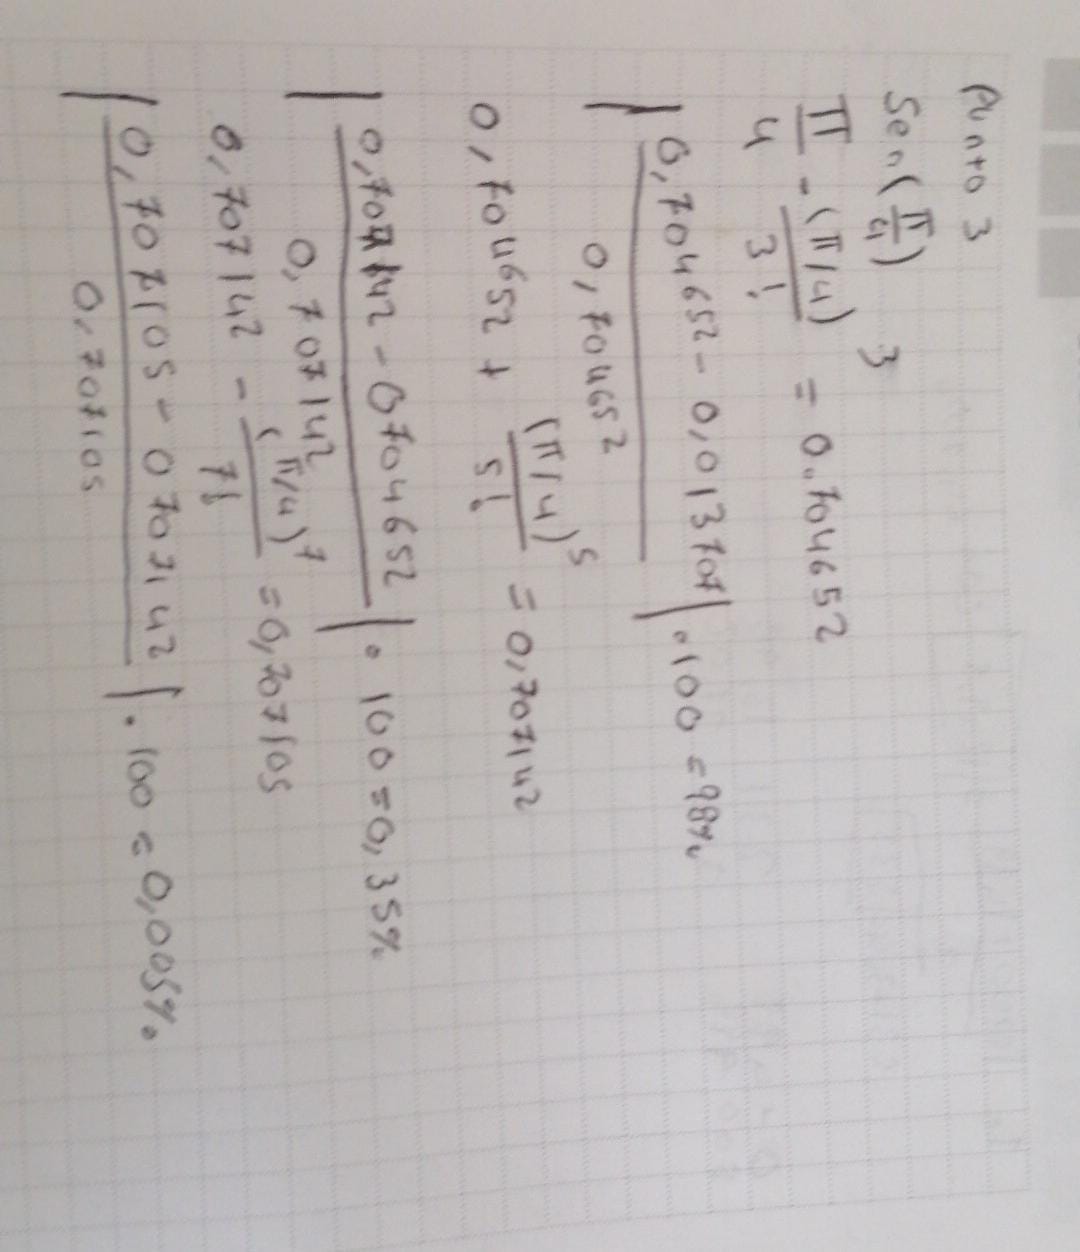 Punto 3
Sen(π/4)
π/4 - (π/4)^3/3! = 0.704652
|0,704652 - 0,013707 / 0,704652| . 100 = 98%
0,704652 + (π/4)^5/5! = 0,707142
|0,707142 - 0704652 / 0,707142| . 100 = 0,35%
0,707142 - (π/4)^7/7! = 0,707105
|0,707105 - 0707142 / 0,707105| . 100 = 0,005%